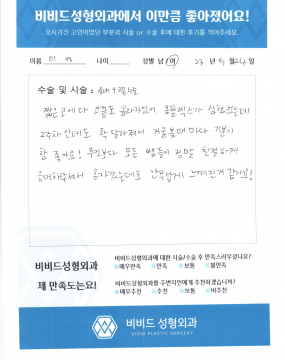 비비드성형외과에서 이만큼 좋아졌어요!
오시기전 고민이었던 부분과 시술 or 수술 후에 대한 후기를 적어주세요.
이름 나이 성별 남 / 여 23 년 6 월 24 일
수술 및 시술 :
짧은 코에다 코끝도 올라가있어 콤플렉스가 심했었는데
2주차인데도 확 달라져서 거울볼때 마다 기분이
참 좋아요! 무엇보다 모든 쌤들이 정말 친절하게
응대해주셔서
비비드성형외과
제 만족도는요!
비비드성형외과에 대한 시술/수술 후 만족스러우셨나요?
매우만족 만족 보통 불만족
비비드성형외과를 주변지인에게 추천하겠습니까?
매우추천 추천 보통 비추천
비비드 성형외과
VIVID PLASTIC SURGERY